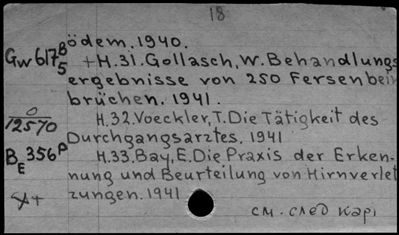 18
ödem. 1940.
Gw 617 8/5 +H.31. Gollasch, W. Behandlungs
ergebnisse von 250 Fersenbein
brüchen. 1941.
0/12510 H.32. Voeckler, T. Die Tätigkeit des
Durchgangsarztes. 1941
BE 356 P H.33. Bay, E. Die Praxis der Erken-
nung und Beurteilung von Hirnverlet
zungen. 1941
см. след карт